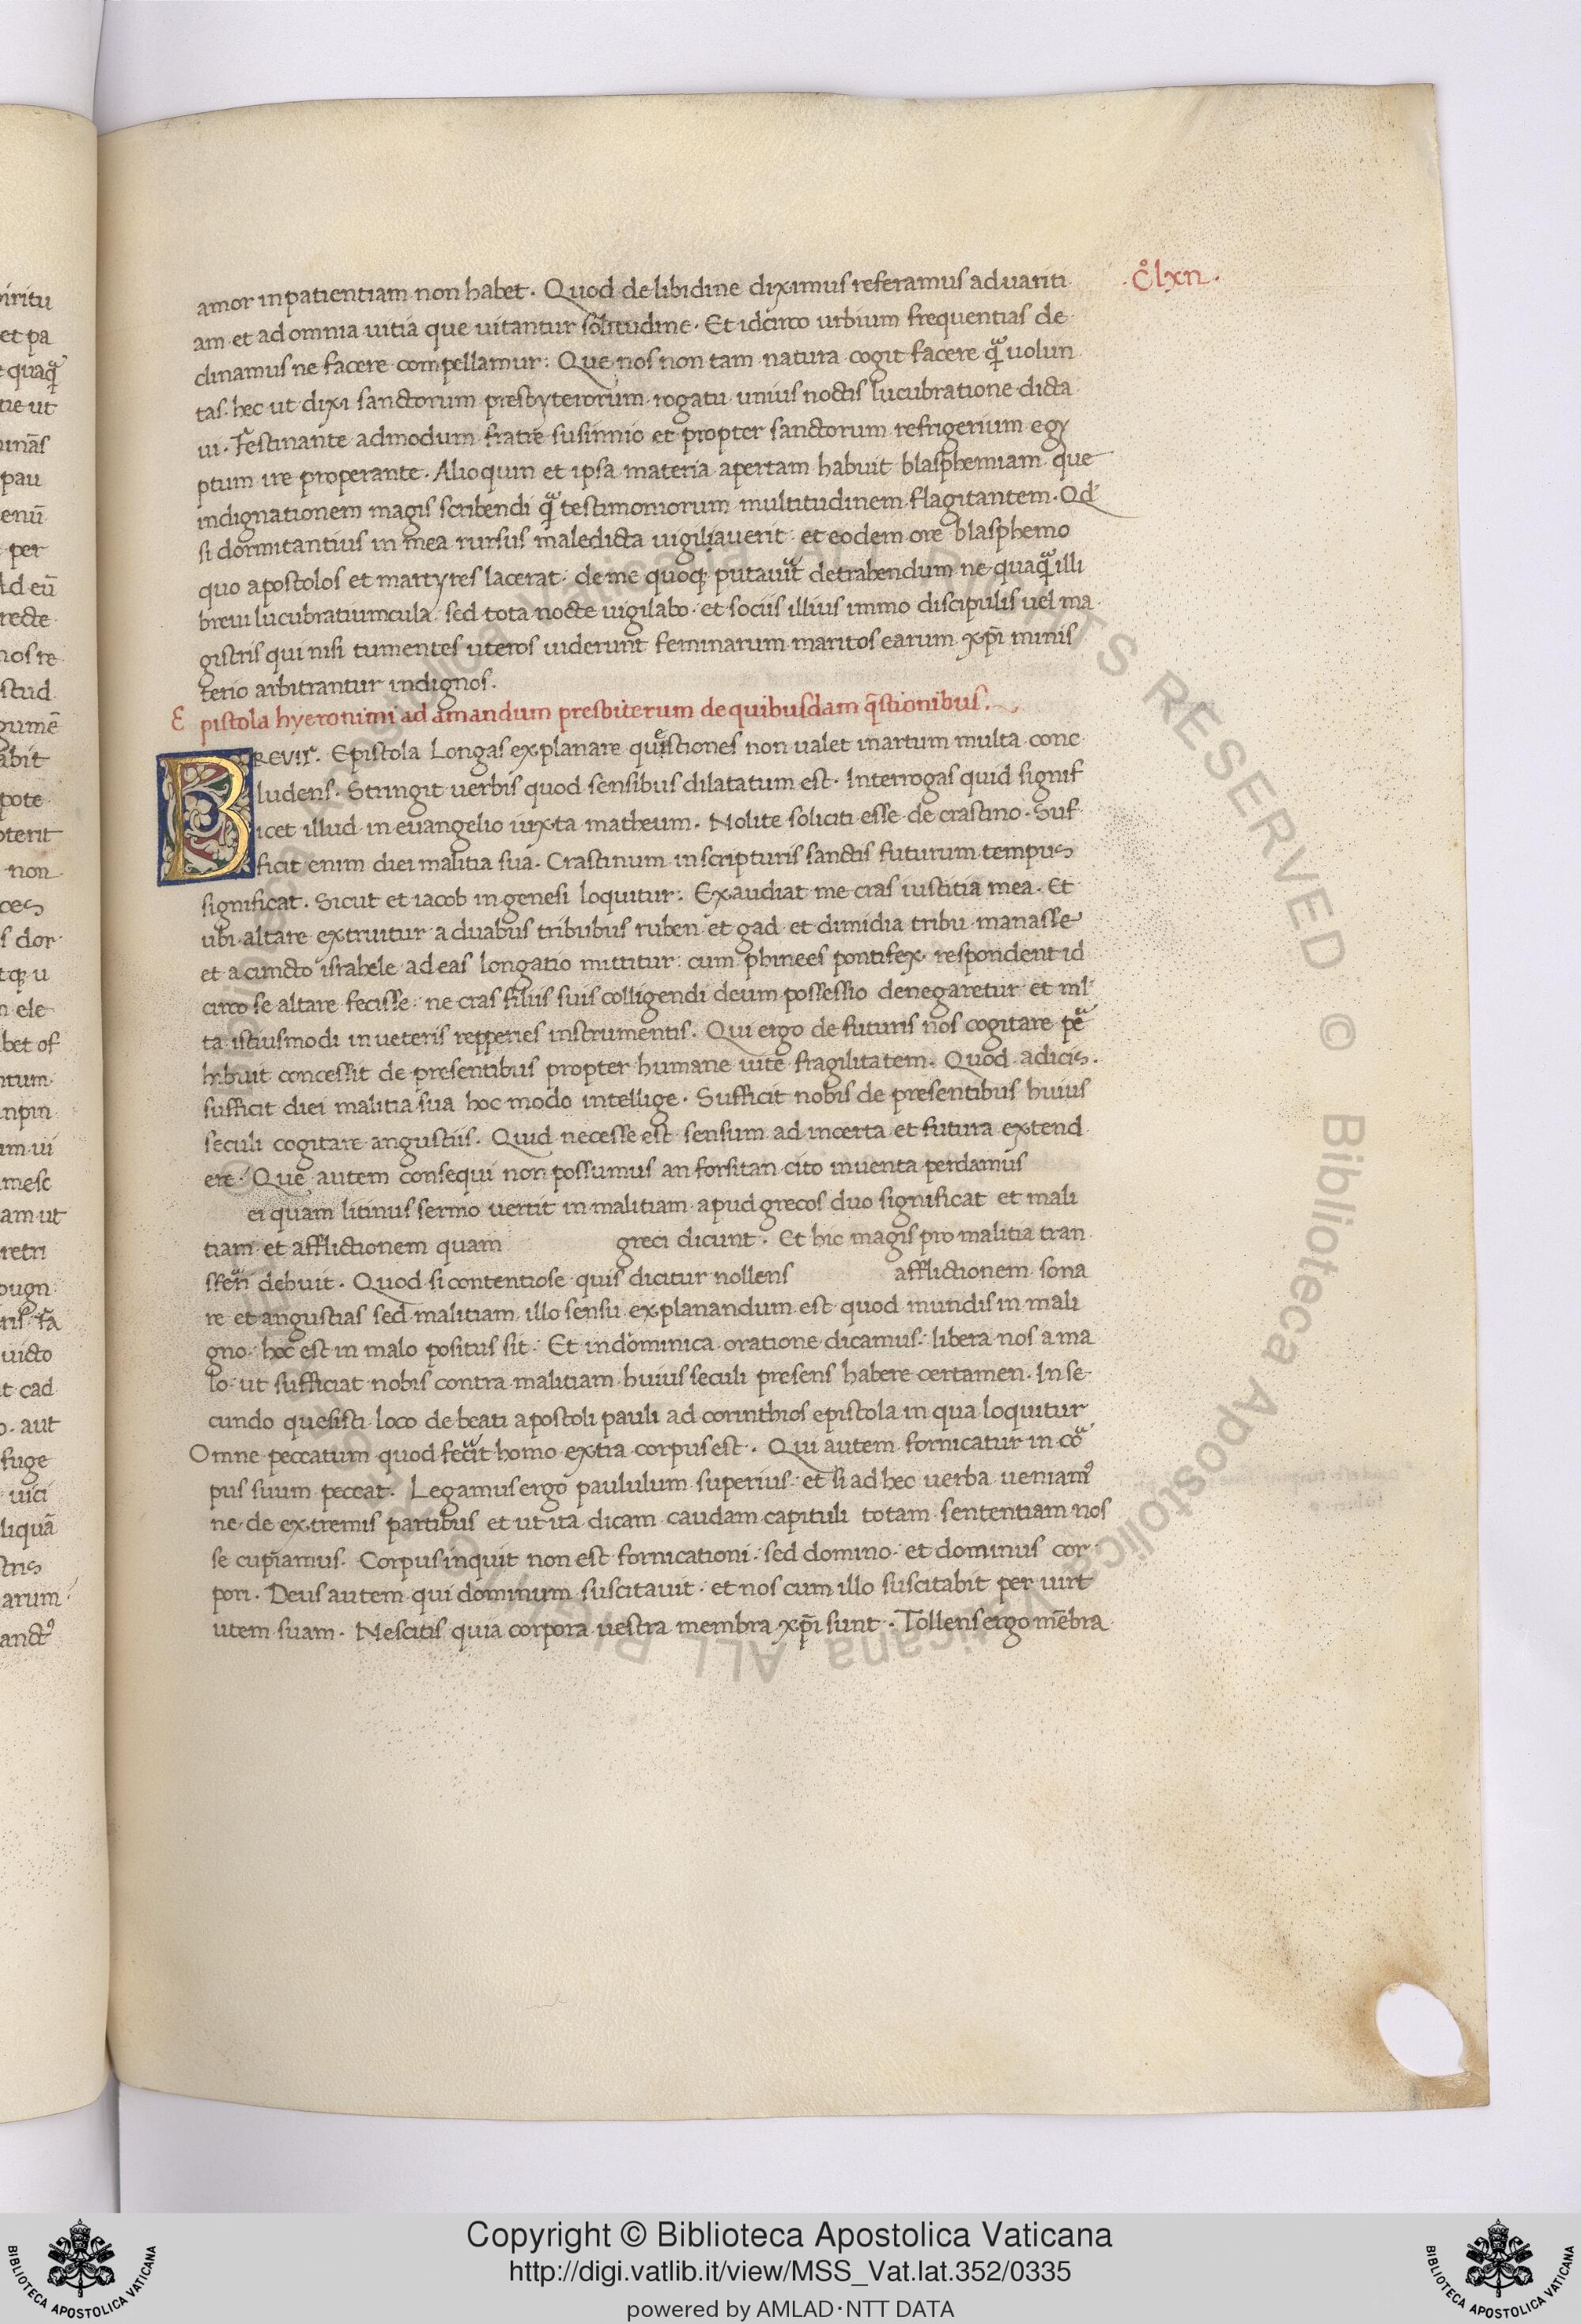 c̊lxn.
amor inpatientiam non habet. Quod de libidine diximus referamus ad uariti
am et ad omnia uitia que uitantur solitudine. Et idcirco urbium frequentias de
clinamus ne facere compellamur: Que nos non tam natura cogit facere qᷓ uolun
tas. hec ut dixi sanctorum presbyterorum rogatu unius noctis lucubratione dicta
ui. Festinante admodum fratre susinnio et propter sanctorum refrigerium egy
ptum ire properante. Alioquin et ipsa materia apertam habuit blasphemiam que
indignationem magis scribendi qᷓ testimoniorum multitudinem flagitantem. Qd
si dormitantius in mea rursus maledicta uigiliauerit: et eodem ore blasphemo
quo apostolos et martyres lacerat. de me quoqꝫ putauit detrahendum ne quaqᷓ illi
breui lucubratiumcula. sed tota nocte uigilabo. et sociis illius immo discipulis uel ma
gistris qui nisi tumentes uteros uiderunt feminarum maritos earum xp̄i minis
terio arbitrantur indignos.
Epistola hyeronimi ad amandum presbiterum de quibusdam q̄stionibus.
BREVIS. Epistola Longas explanare questiones non ualet inartum multa conc
ludens. Stringit uerbis quod sensibus dilatatum est. Interrogas quid signif
icet illud in euangelio iuxta matheum. Nolite soliciti esse de crastino. Suf
ficit enim diei malitia sua. Crastinum in scripturis sanctis futurum tempus
significat. Sicut et iacob in genesi loquitur: Exaudiat me cras iustitia mea. Et
ubi altare extruitur a duabus tribubus ruben et gad et dimidia tribu manasse
et a cuncto israhele ad eas longatio mittitur: cum phinees pontifex respondent id
circo se altare fecisse. ne cras filiis suis colligendi deum possessio denegaretur et ml
ta istiusmodi in ueteris repperies instrumentis. Qui ergo de futuris nos cogitare pͣe
hibuit concessit de presentibus propter humane uite fragilitatem. Quod adicis.
sufficit diei malitia sua hoc modo intellige. Sufficit nobis de presentibus huius
seculi cogitare angustiis. Quid necesse est sensum ad incerta et futura extend
ere. Que autem consequi non possumus an forsitan cito inuenta perdamus
ei quam litinus sermo uertit in malitiam apud grecos duo significat et mali
tiam et afflictionem quam greci dicunt. Et hic magis pro malitia tran
sferri debuit. Quod si contentiose quis dicitur nollens afflictionem sona
re et angustias sed malitiam illo sensu explanandum est quod mundis in mali
gno. hoc est in malo positus sit. Et in dominica oratione dicamus: libera nos a ma
lo. ut sufficiat nobis contra malitiam huius seculi presens habere certamen. In se
cundo quesisti loco de beati apostoli pauli ad corinthios epistola in qua loquitur
Omne peccatum quod fecit homo extra corpus est. Qui autem fornicatur in coͬ
pus suum peccat. Legamus ergo paululum superius. et si ad hec uerba ueniamꝰ
ne de extremis partibus et ut ita dicam caudam capituli totam sententiam nos
se cupiamus. Corpus inquit non est fornicationi: sed domino. et dominus cor
pori. Deus autem qui dominum suscitauit. et nos cum illo suscitabit per uirt
utem suam. Nescitis quia corpora uestra membra xp̄i sunt. Tollens ergo mēbra
Copyright © Biblioteca Apostolica Vaticana
http://digi.vatlib.it/view/MSS_Vat.lat.352/0335
powered by AMLAD·NTT DATA